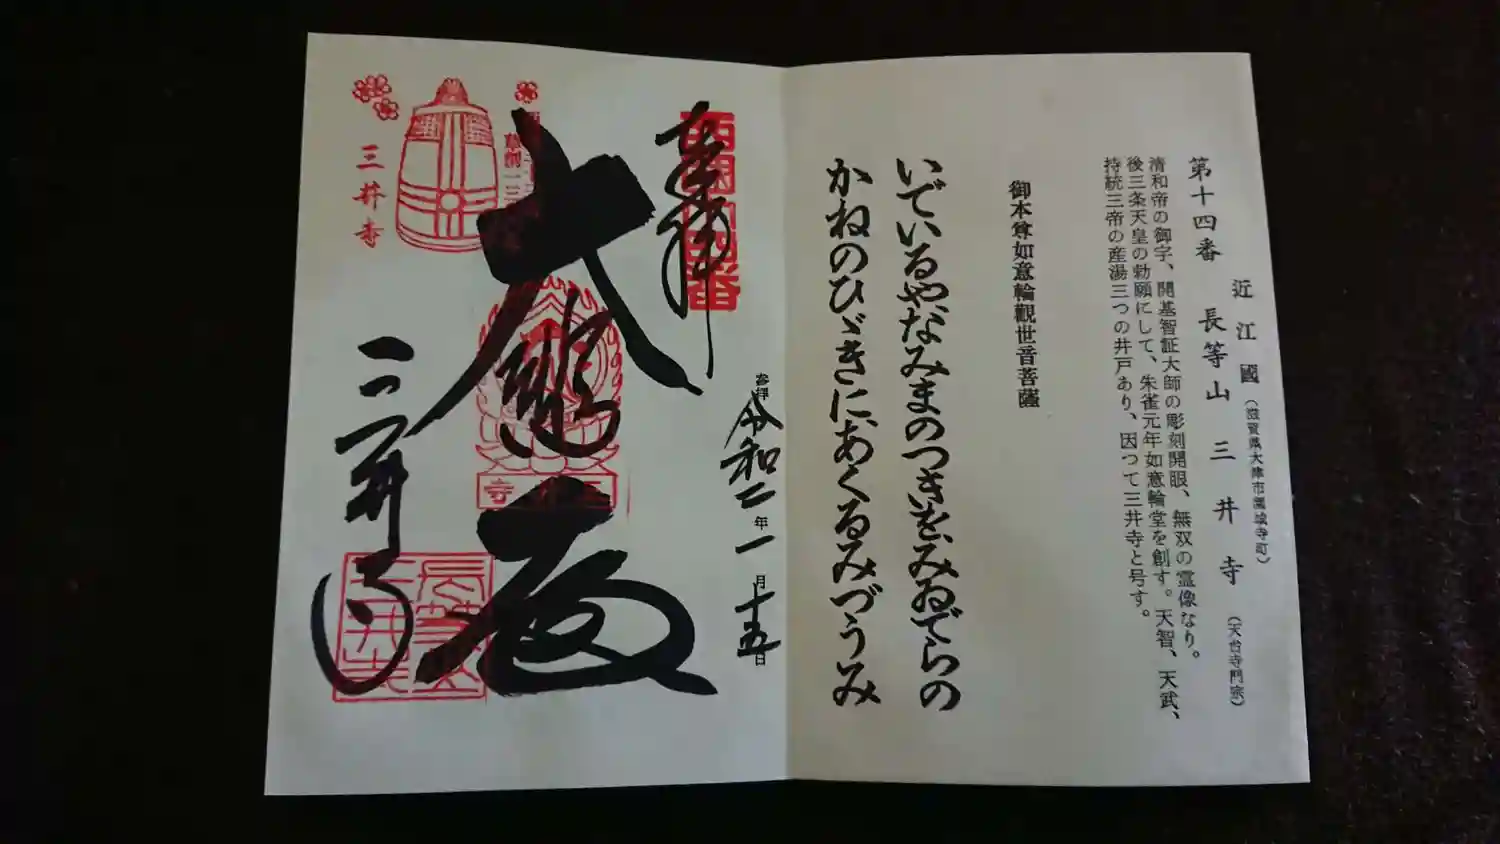 近江國(滋賀県大津市園城寺町)
第十四番 長等山 三井寺(天台寺門宗)
清和帝の御字、開基智証大師の彫刻開眼、無双の霊像なり。
後三条天皇の勅願にして、朱雀元年如意輪堂を創す。天智、天武、
持統三帝の産湯三つの井戸あり、因つて三井寺と号す。
御本尊如意輪觀世音菩薩
いでいるや、なみまのつきを、みゐでらの
かねのひゞきに、あくるみづうみ
奉拝
西国十四番
参拝 令和二年一月十五日
大悲殿
三井寺
三井寺
長等山
三井寺